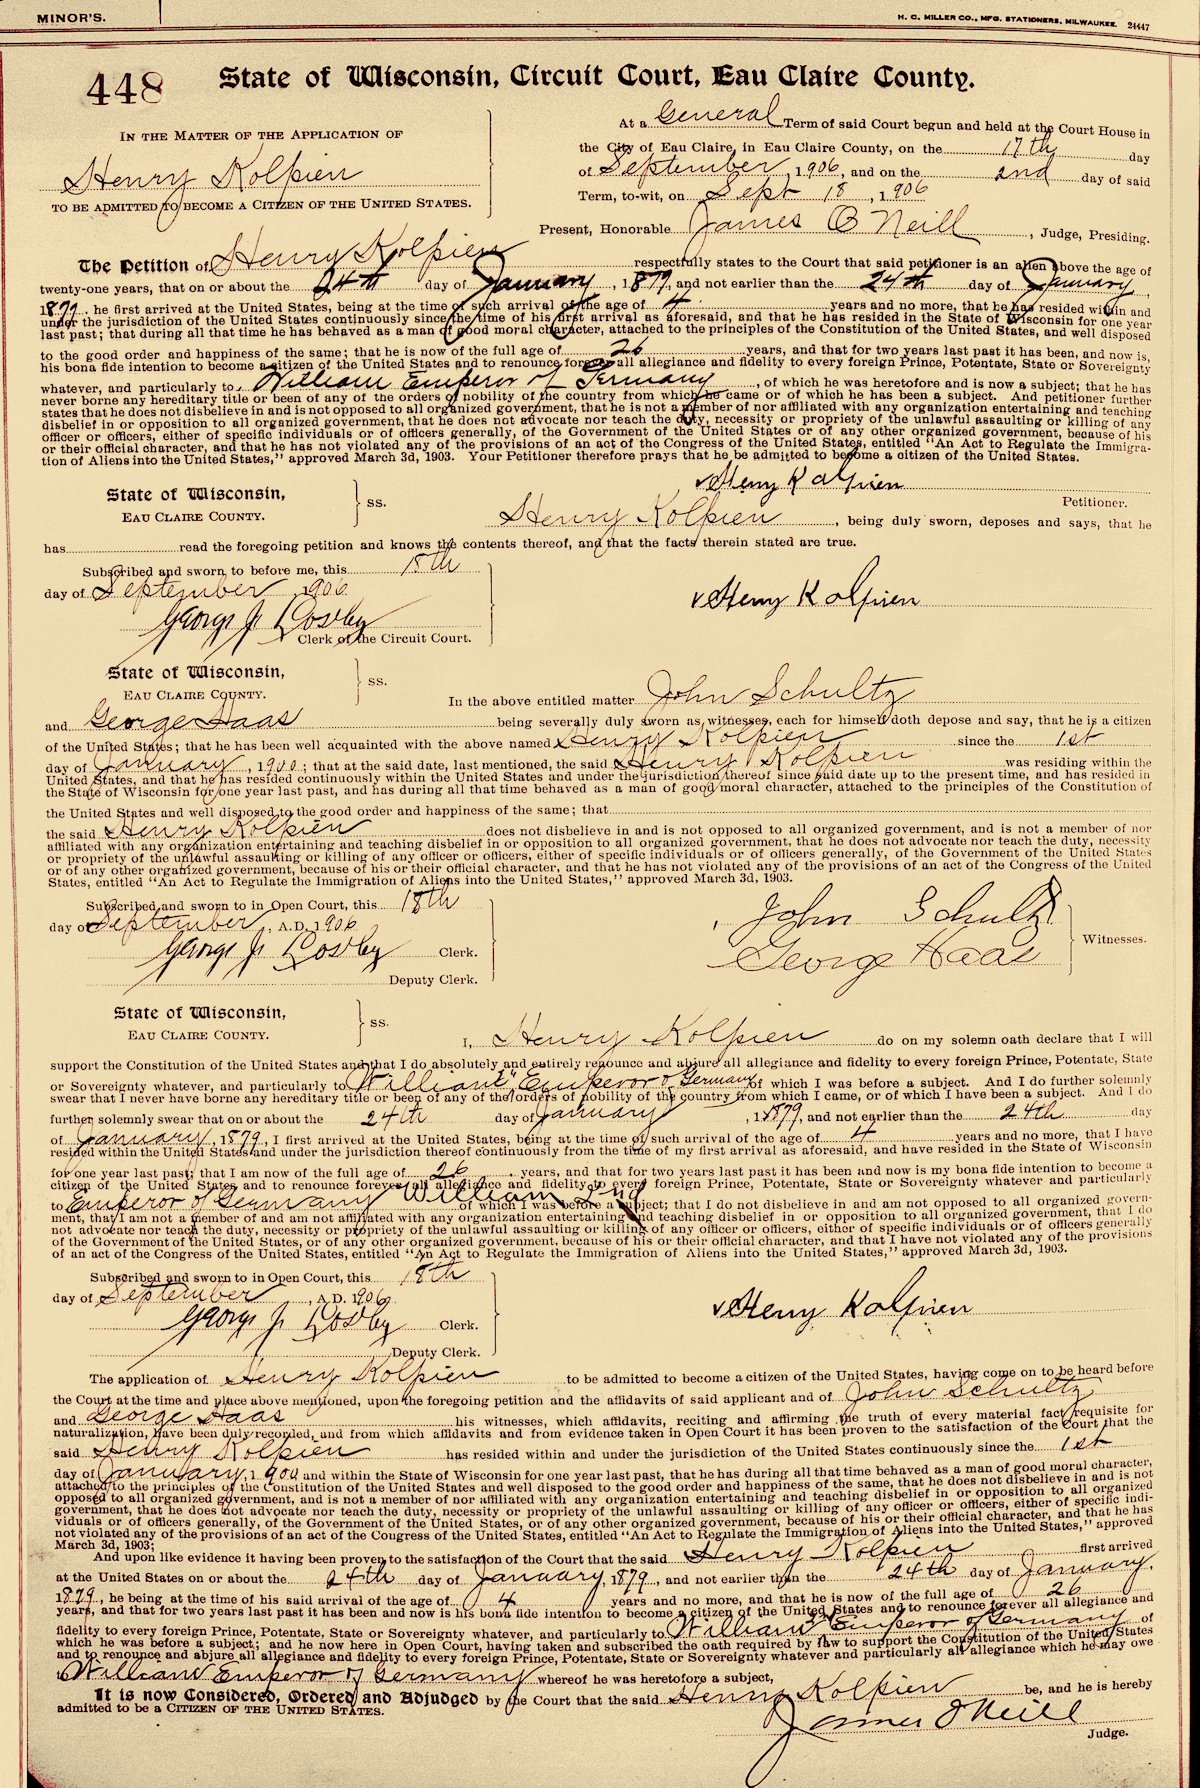 MINOR'S.
H. C. MILLER CO., MFG. STATIONERS, MILWAUKEE. 24447
448
State of Wisconsin, Circuit Court, Eau Claire County.
IN THE MATTER OF THE APPLICATION OF
Henry Kolpien
TO BE ADMITTED TO BECOME A CITIZEN OF THE UNITED STATES.
At a General Term of said Court begun and held at the Court House in
the City of Eau Claire, in Eau Claire County, on the 17th day
of September, 1906, and on the 2nd day of said
Term, to-wit, on Sept 18, 1906
Present, Honorable James O'Neill, Judge, Presiding.
The Petition of Henry Kolpien respectfully states to the Court that said petitioner is an alien above the age of
twenty-one years, that on or about the 24th day of January, 1879, and not earlier than the 24th day of January,
1879, he first arrived at the United States, being at the time of such arrival of the age of 4 years and no more, that he has resided within and
under the jurisdiction of the United States continuously since the time of his first arrival as aforesaid, and that he has resided in the State of Wisconsin for one year
last past; that during all that time he has behaved as a man of good moral character, attached to the principles of the Constitution of the United States, and well disposed
to the good order and happiness of the same; that he is now of the full age of 26 years, and that for two years last past it has been, and now is,
his bona fide intention to become a citizen of the United States and to renounce forever all allegiance and fidelity to every foreign Prince, Potentate, State or Sovereignty
whatever, and particularly to William Emperor of Germany, of which he was heretofore and is now a subject; that he has
never borne any hereditary title or been of any of the orders of nobility of the country from which he came or of which he has been a subject. And petitioner further
states that he does not disbelieve in and is not opposed to all organized government, that he is not a member of nor affiliated with any organization entertaining and teaching
disbelief in or opposition to all organized government, that he does not advocate nor teach the duty, necessity or propriety of the unlawful assaulting or killing of any
officer or officers, either of specific individuals or of officers generally, of the Government of the United States or of any other organized government, because of his
or their official character, and that he has not violated any of the provisions of an act of the Congress of the United States, entitled "An Act to Regulate the Immigra-
tion of Aliens into the United States," approved March 3d, 1903. Your Petitioner therefore prays that he be admitted to become a citizen of the United States.
Henry Kolpien
Petitioner.
State of Wisconsin,
EAU CLAIRE COUNTY.
ss.
Henry Kolpien, being duly sworn, deposes and says, that he
has read the foregoing petition and knows the contents thereof, and that the facts therein stated are true.
Subscribed and sworn to before me, this 18th
day of September 1906
George J. Losby
Clerk of the Circuit Court.
Henry Kolpien
State of Wisconsin,
EAU CLAIRE COUNTY.
ss.
In the above entitled matter John Schultz
and George Haas being severally duly sworn as witnesses, each for himself doth depose and say, that he is a citizen
of the United States; that he has been well acquainted with the above named Henry Kolpien since the 1st
day of January, 1900; that at the said date, last mentioned, the said Henry Kolpien was residing within the
United States, and that he has resided continuously within the United States and under the jurisdiction thereof since said date up to the present time, and has resided in
the State of Wisconsin for one year last past, and has during all that time behaved as a man of good moral character, attached to the principles of the Constitution of
the United States and well disposed to the good order and happiness of the same; that
the said Henry Kolpien does not disbelieve in and is not opposed to all organized government, and is not a member of nor
affiliated with any organization entertaining and teaching disbelief in or opposition to all organized government, that he does not advocate nor teach the duty, necessity
or propriety of the unlawful assaulting or killing of any officer or officers, either of specific individuals or of officers generally, of the Government of the United States
or of any other organized government, because of his or their official character, and that he has not violated any of the provisions of an act of the Congress of the United
States, entitled "An Act to Regulate the Immigration of Aliens into the United States," approved March 3d, 1903.
Subscribed and sworn to in Open Court, this 18th
day of September, A.D. 1906
George J. Losby Clerk.
Deputy Clerk.
John Schultz
George Haas
Witnesses.
State of Wisconsin,
EAU CLAIRE COUNTY.
ss.
I, Henry Kolpien do on my solemn oath declare that I will
support the Constitution of the United States and that I do absolutely and entirely renounce and abjure all allegiance and fidelity to every foreign Prince, Potentate, State
or Sovereignty whatever, and particularly to William Emperor of Germany of which I was before a subject. And I do further solemnly
swear that I never have borne any hereditary title or been of any of the orders of nobility of the country from which I came, or of which I have been a subject. And I do
further solemnly swear that on or about the 24th day of January, 1879, and not earlier than the 24th day
of January, 1879, I first arrived at the United States, being at the time of such arrival of the age of 4 years and no more, that I have
resided within the United States and under the jurisdiction thereof continuously from the time of my first arrival as aforesaid, and have resided in the State of Wisconsin
for one year last past; that I am now of the full age of 26 years, and that for two years last past it has been and now is my bona fide intention to become a
citizen of the United States and to renounce forever all allegiance and fidelity to every foreign Prince, Potentate, State or Sovereignty whatever and particularly
to Emperor of Germany William 2nd of which I was before a subject; that I do not disbelieve in and am not opposed to all organized govern-
ment, that I am not a member of and am not affiliated with any organization entertaining and teaching disbelief in or opposition to all organized government, that I do
not advocate nor teach the duty, necessity or propriety of the unlawful assaulting or killing of any officer or officers, either of specific individuals or of officers generally
of the Government of the United States, or of any other organized government, because of his or their official character, and that I have not violated any of the provisions
of an act of the Congress of the United States, entitled "An Act to Regulate the Immigration of Aliens into the United States," approved March 3d, 1903.
Subscribed and sworn to in Open Court, this 18th
day of September, A.D. 1906
George J. Losby Clerk.
Deputy Clerk.
Henry Kolpien
The application of Henry Kolpien to be admitted to become a citizen of the United States, having come on to be heard before
the Court at the time and place above mentioned, upon the foregoing petition and the affidavits of said applicant and of John Schultz
and George Haas his witnesses, which affidavits, reciting and affirming the truth of every material fact requisite for
naturalization, have been duly recorded, and from which affidavits and from evidence taken in Open Court it has been proven to the satisfaction of the Court that the
said Henry Kolpien has resided within and under the jurisdiction of the United States continuously since the 1st
day of January, 1900 and within the State of Wisconsin for one year last past, that he has during all that time behaved as a man of good moral character,
attached to the principles of the Constitution of the United States and well disposed to the good order and happiness of the same, that he does not disbelieve in and is not
opposed to all organized government, and is not a member of nor affiliated with any organization entertaining and teaching disbelief in or opposition to all organized
government, that he does not advocate nor teach the duty, necessity or propriety of the unlawful assaulting or killing of any officer or officers, either of specific indi-
viduals or of officers generally, of the Government of the United States, or of any other organized government, because of his or their official character, and that he has
not violated any of the provisions of an act of the Congress of the United States, entitled "An Act to Regulate the Immigration of Aliens into the United States," approved
March 3d, 1903;
And upon like evidence it having been proven to the satisfaction of the Court that the said Henry Kolpien first arrived
at the United States on or about the 24th day of January, 1879, and not earlier than the 24th day of January,
1879, he being at the time of his said arrival of the age of 4 years and no more, and that he is now of the full age of 26
years, and that for two years last past it has been and now is his bona fide intention to become a citizen of the United States and to renounce forever all allegiance and
fidelity to every foreign Prince, Potentate, State or Sovereignty whatever, and particularly to William Emperor of Germany of
which he was before a subject; and he now here in Open Court, having taken and subscribed the oath required by law to support the Constitution of the United States
and to renounce and abjure all allegiance and fidelity to every foreign Prince, Potentate, State or Sovereignty whatever and particularly all allegiance which he may owe
to William Emperor of Germany whereof he was heretofore a subject,
It is now Considered, Ordered and Adjudged by the Court that the said Henry Kolpien be, and he is hereby
admitted to be a CITIZEN OF THE UNITED STATES.
James O'Neill
Judge.